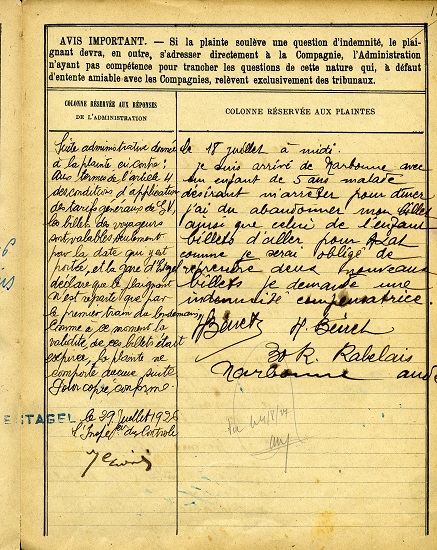 AVIS IMPORTANT. — Si la plainte soulève une question d'indemnité, le plai-
gnant devra, en outre, s'adresser directement à la Compagnie, l'Administration
n'ayant pas compétence pour trancher les questions de cette nature qui, à défaut
d'entente amiable avec les Compagnies, relèvent exclusivement des tribunaux.
COLONNE RÉSERVÉE AUX RÉPONSES
DE L'ADMINISTRATION
Suite administrative donnée
à la plainte ci-contre :
Aux termes de l'article 4
des conditions d'application
des tarifs généraux de G.V,
les billets des voyageurs
sont valables seulement
pour la date qui y est
portée, et la gare d'Estagel
déclare que le plaignant
n'est reparti que par
le premier train du lendemain,
Comme à ce moment la
validité de ces billets était
expirée, la plainte ne
comporte aucune suite
Pour copie conforme.
le 29 Juillet 1926
l'Insp du Contrôle
COLONNE RÉSERVÉE AUX PLAINTES
Le 18 juillet à midi.
je suis arrivé de Narbonne avec
un enfant de 5 ans malade
désirant m'arrêter pour diner
j'ai du abandonner mon billet
ainsi que celui de l'enfant
billets d'aller pour Axat
comme je serai obligé de
reprendre deux nouveaux
billets je demande une
indemnité compensatrice.
H.
30 R. Rabelais
Narbonne aude
Vu
ESTAGEL